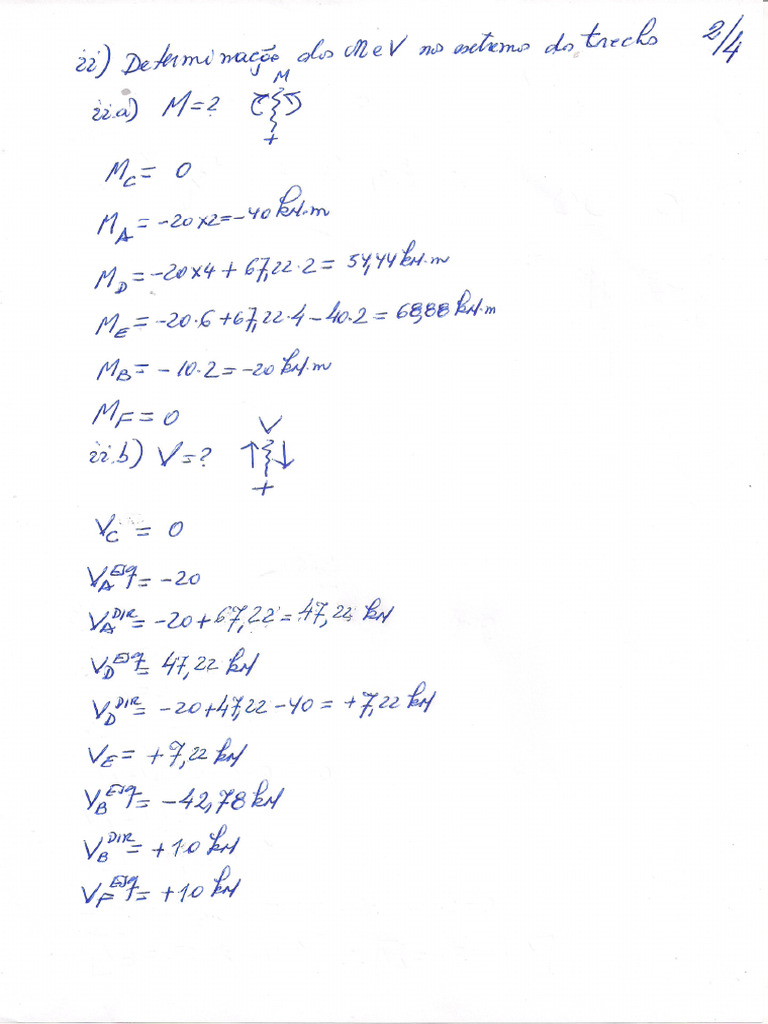 ii) Determinação dos M e V nos extremos dos trechos 2/4
M
ii.a) M=? +
M_C = 0
M_A = -20×2 = -40 kN.m
M_D = -20×4 + 67,22·2 = 54,44 kN.m
M_E = -20·6 + 67,22·4 - 40·2 = 68,88 kN.m
M_B = -10·2 = -20 kN.m
M_F = 0
V
ii.b) V=? ↑ ↓ +
V_C = 0
V_A^ESQ = -20
V_A^DIR = -20 + 67,22 = 47,22 kN
V_D^ESQ = 47,22 kN
V_D^DIR = -20 + 47,22 - 40 = +7,22 kN
V_E = +7,22 kN
V_B^ESQ = -42,78 kN
V_B^DIR = +10 kN
V_F^ESQ = +10 kN